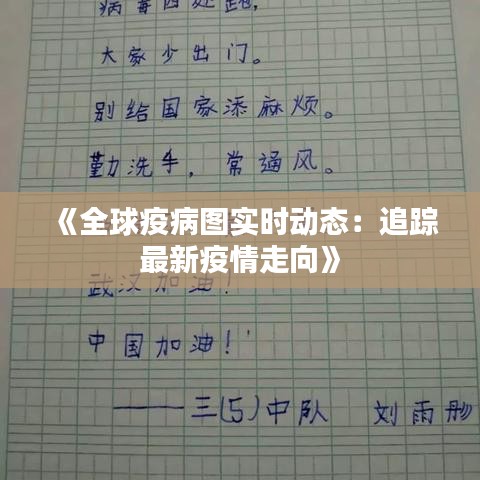 病毒四处跑，
大家少出门。
别给国家添麻烦。
勤洗手，常通风。
《全球疫病图实时动态：追踪
最新疫情走向》
武汉加油！
中国加油！
——三(5)中队 刘雨彤